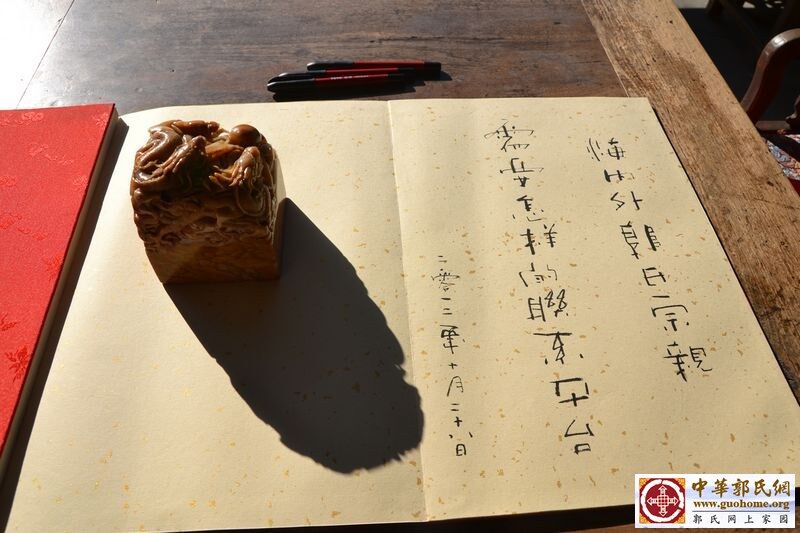 海內外郭氏宗親
需要怎樣的聯平台
二零一二年十月二十八日
中華郭氏網
www.guohome.org
郭氏网上家园